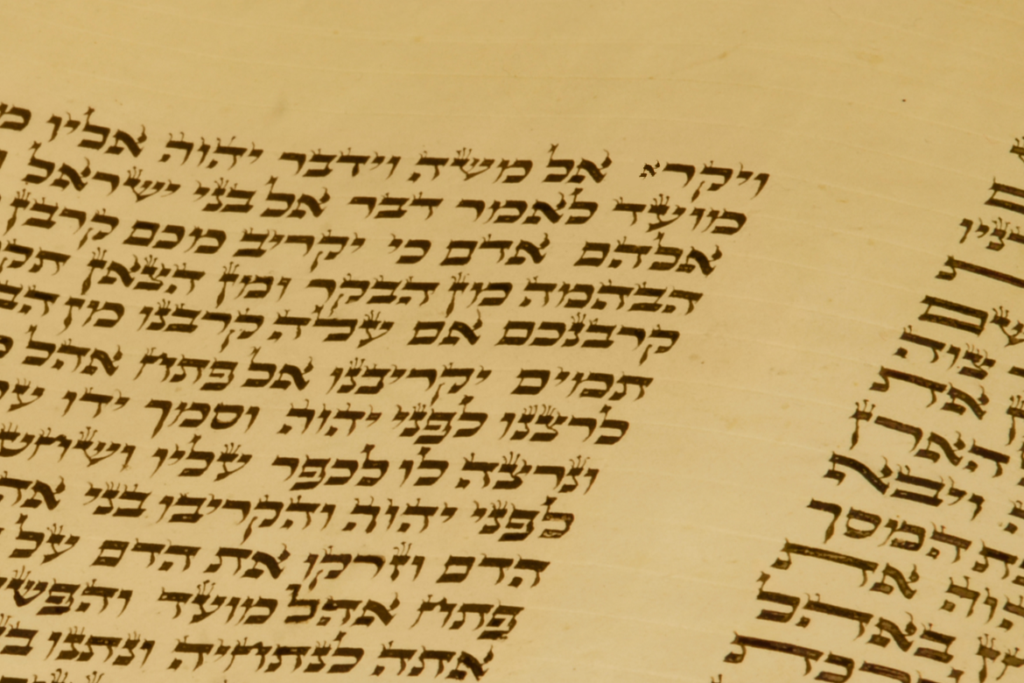 צוה
את
הארן
ויבא
המסך
את
באהל
ויקרא אל משה וידבר יהוה אליו
מועד לאמר דבר אל בני ישראל
אלהם אדם כי יקריב מכם קרבן
הבהמה מן הבקר ומן הצאן תק
קרבנכם אם עלה קרבנו מן הב
תמים יקריבנו אל פתח אהל
לרצנו לפני יהוה וסמך ידו
ונרצה לו לכפר עליו ושח
לפני יהוה והקריבו בני אה
הדם וזרקו את הדם על
פתח אהל מועד והפשי
אתה לנתחיה ונתנו ב